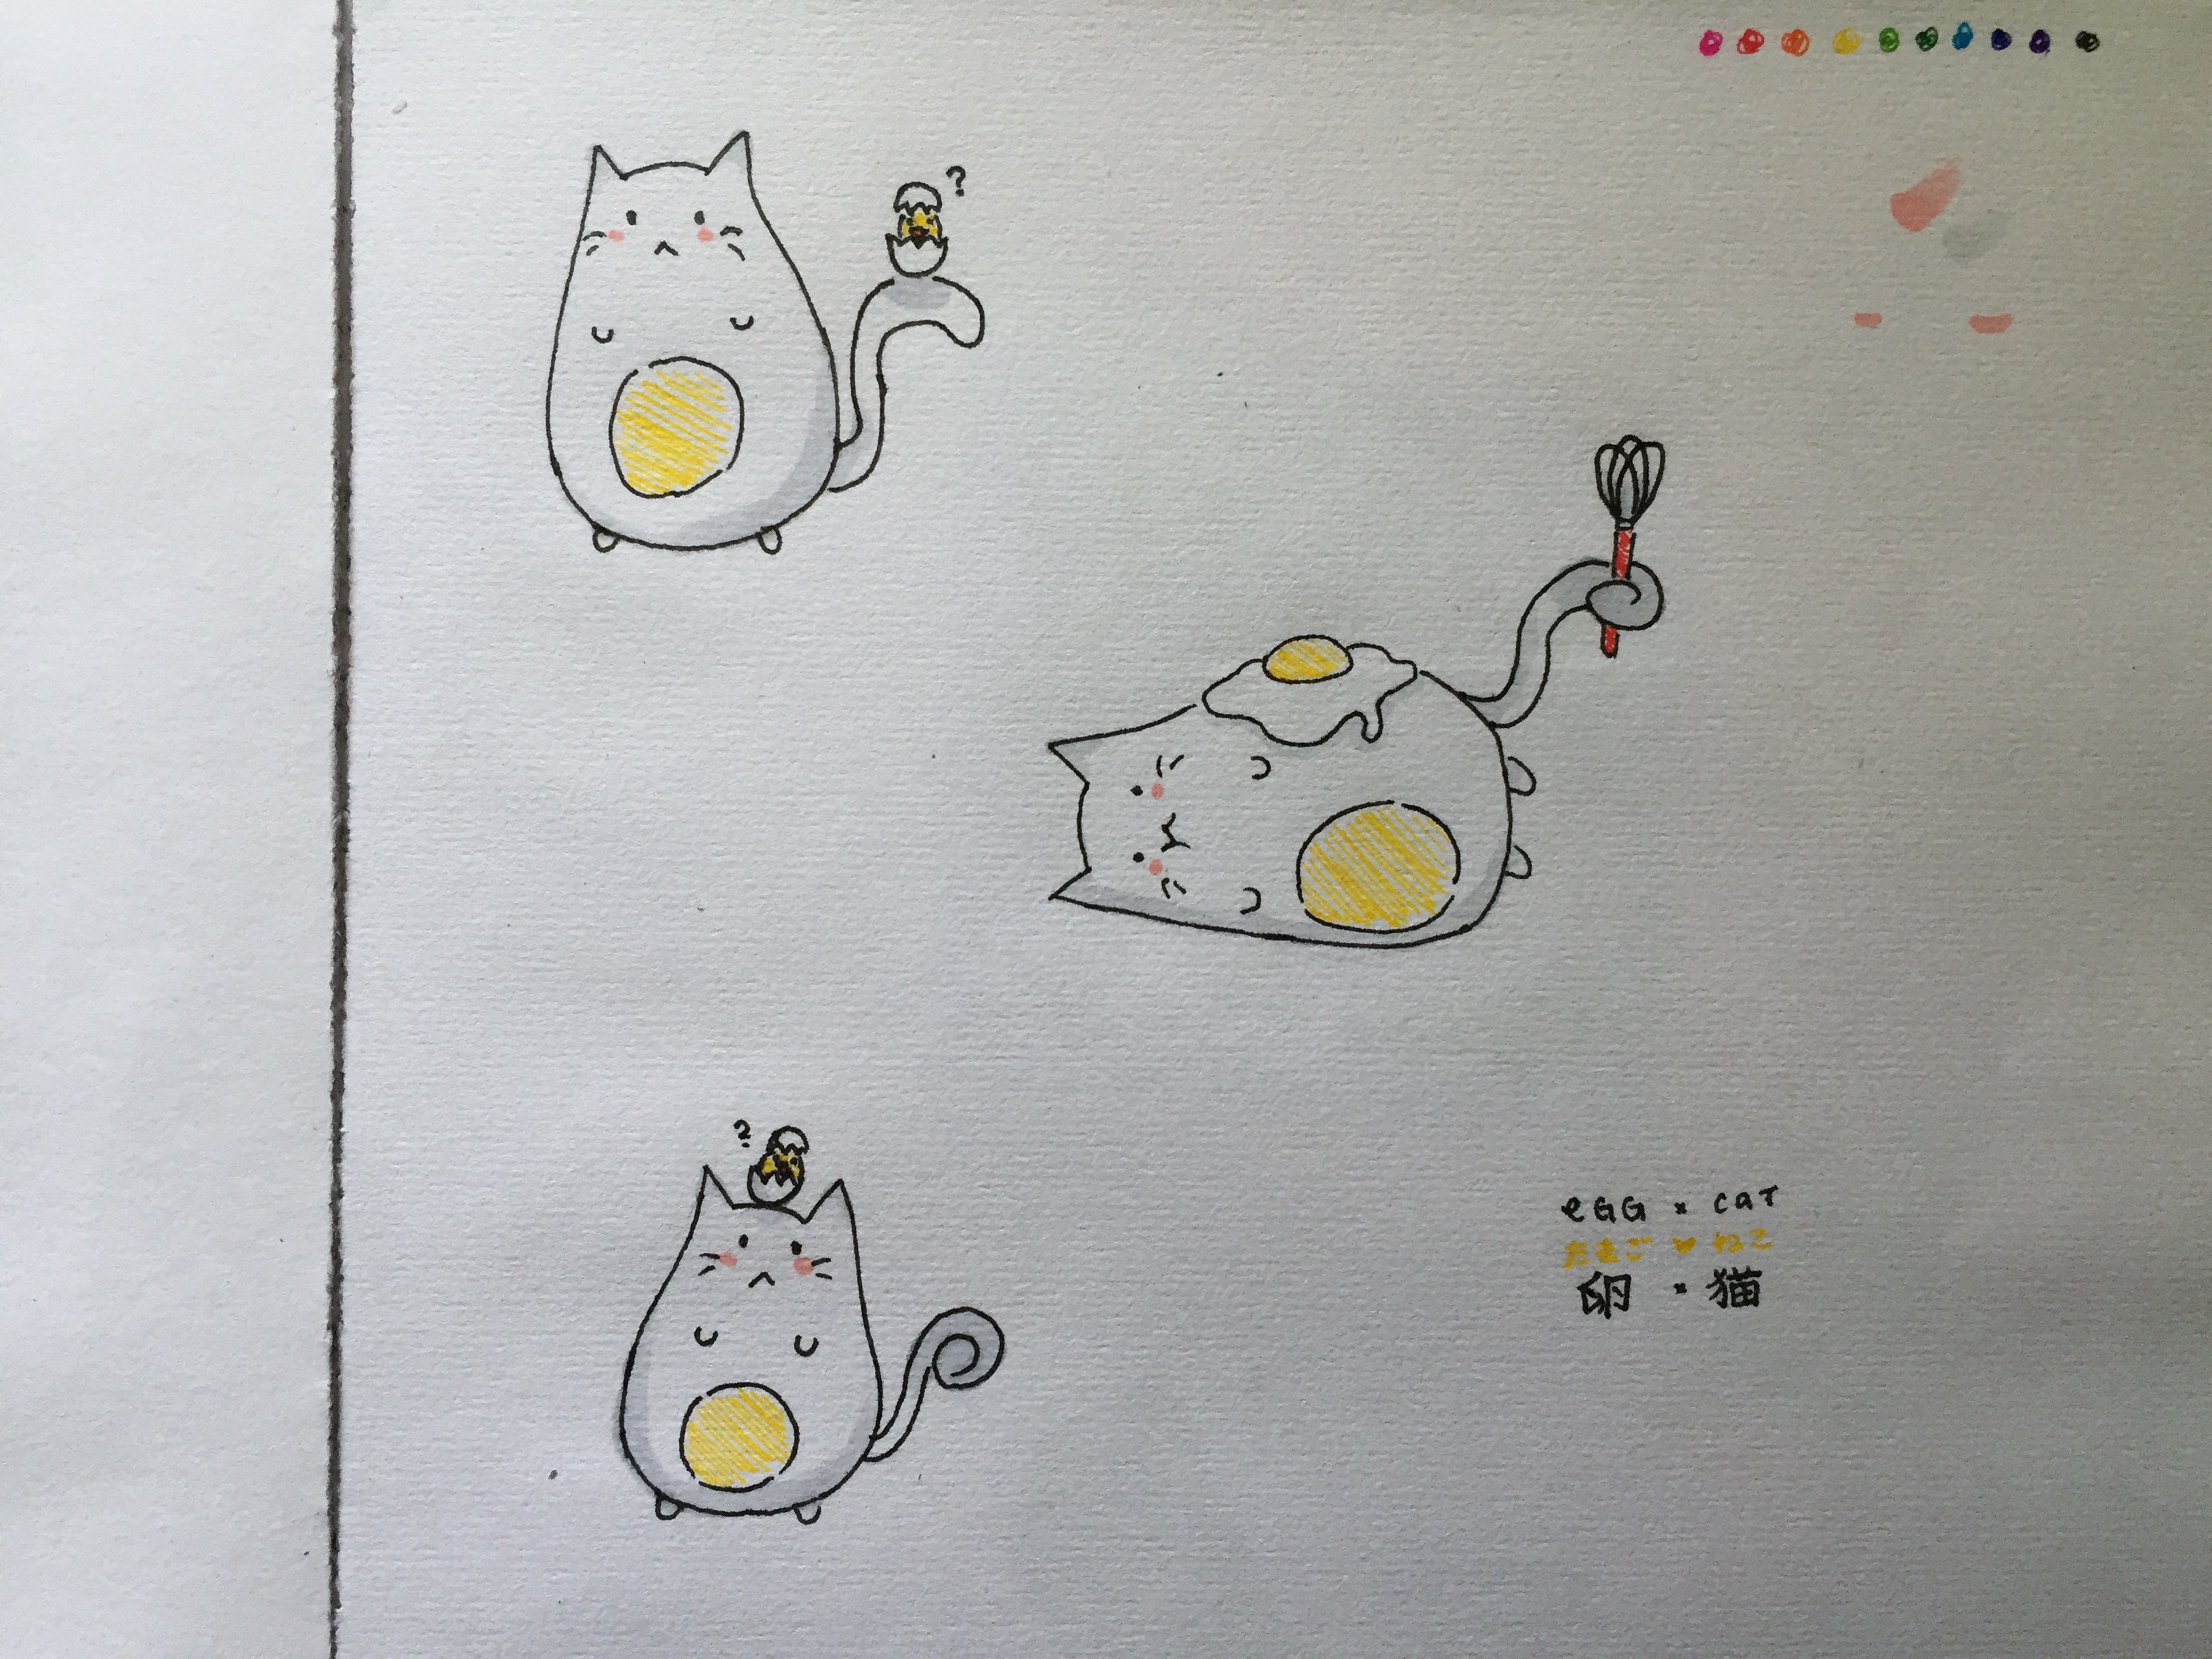 ?
?
eGG × cat
たまご ♥ ねこ
卵 × 猫